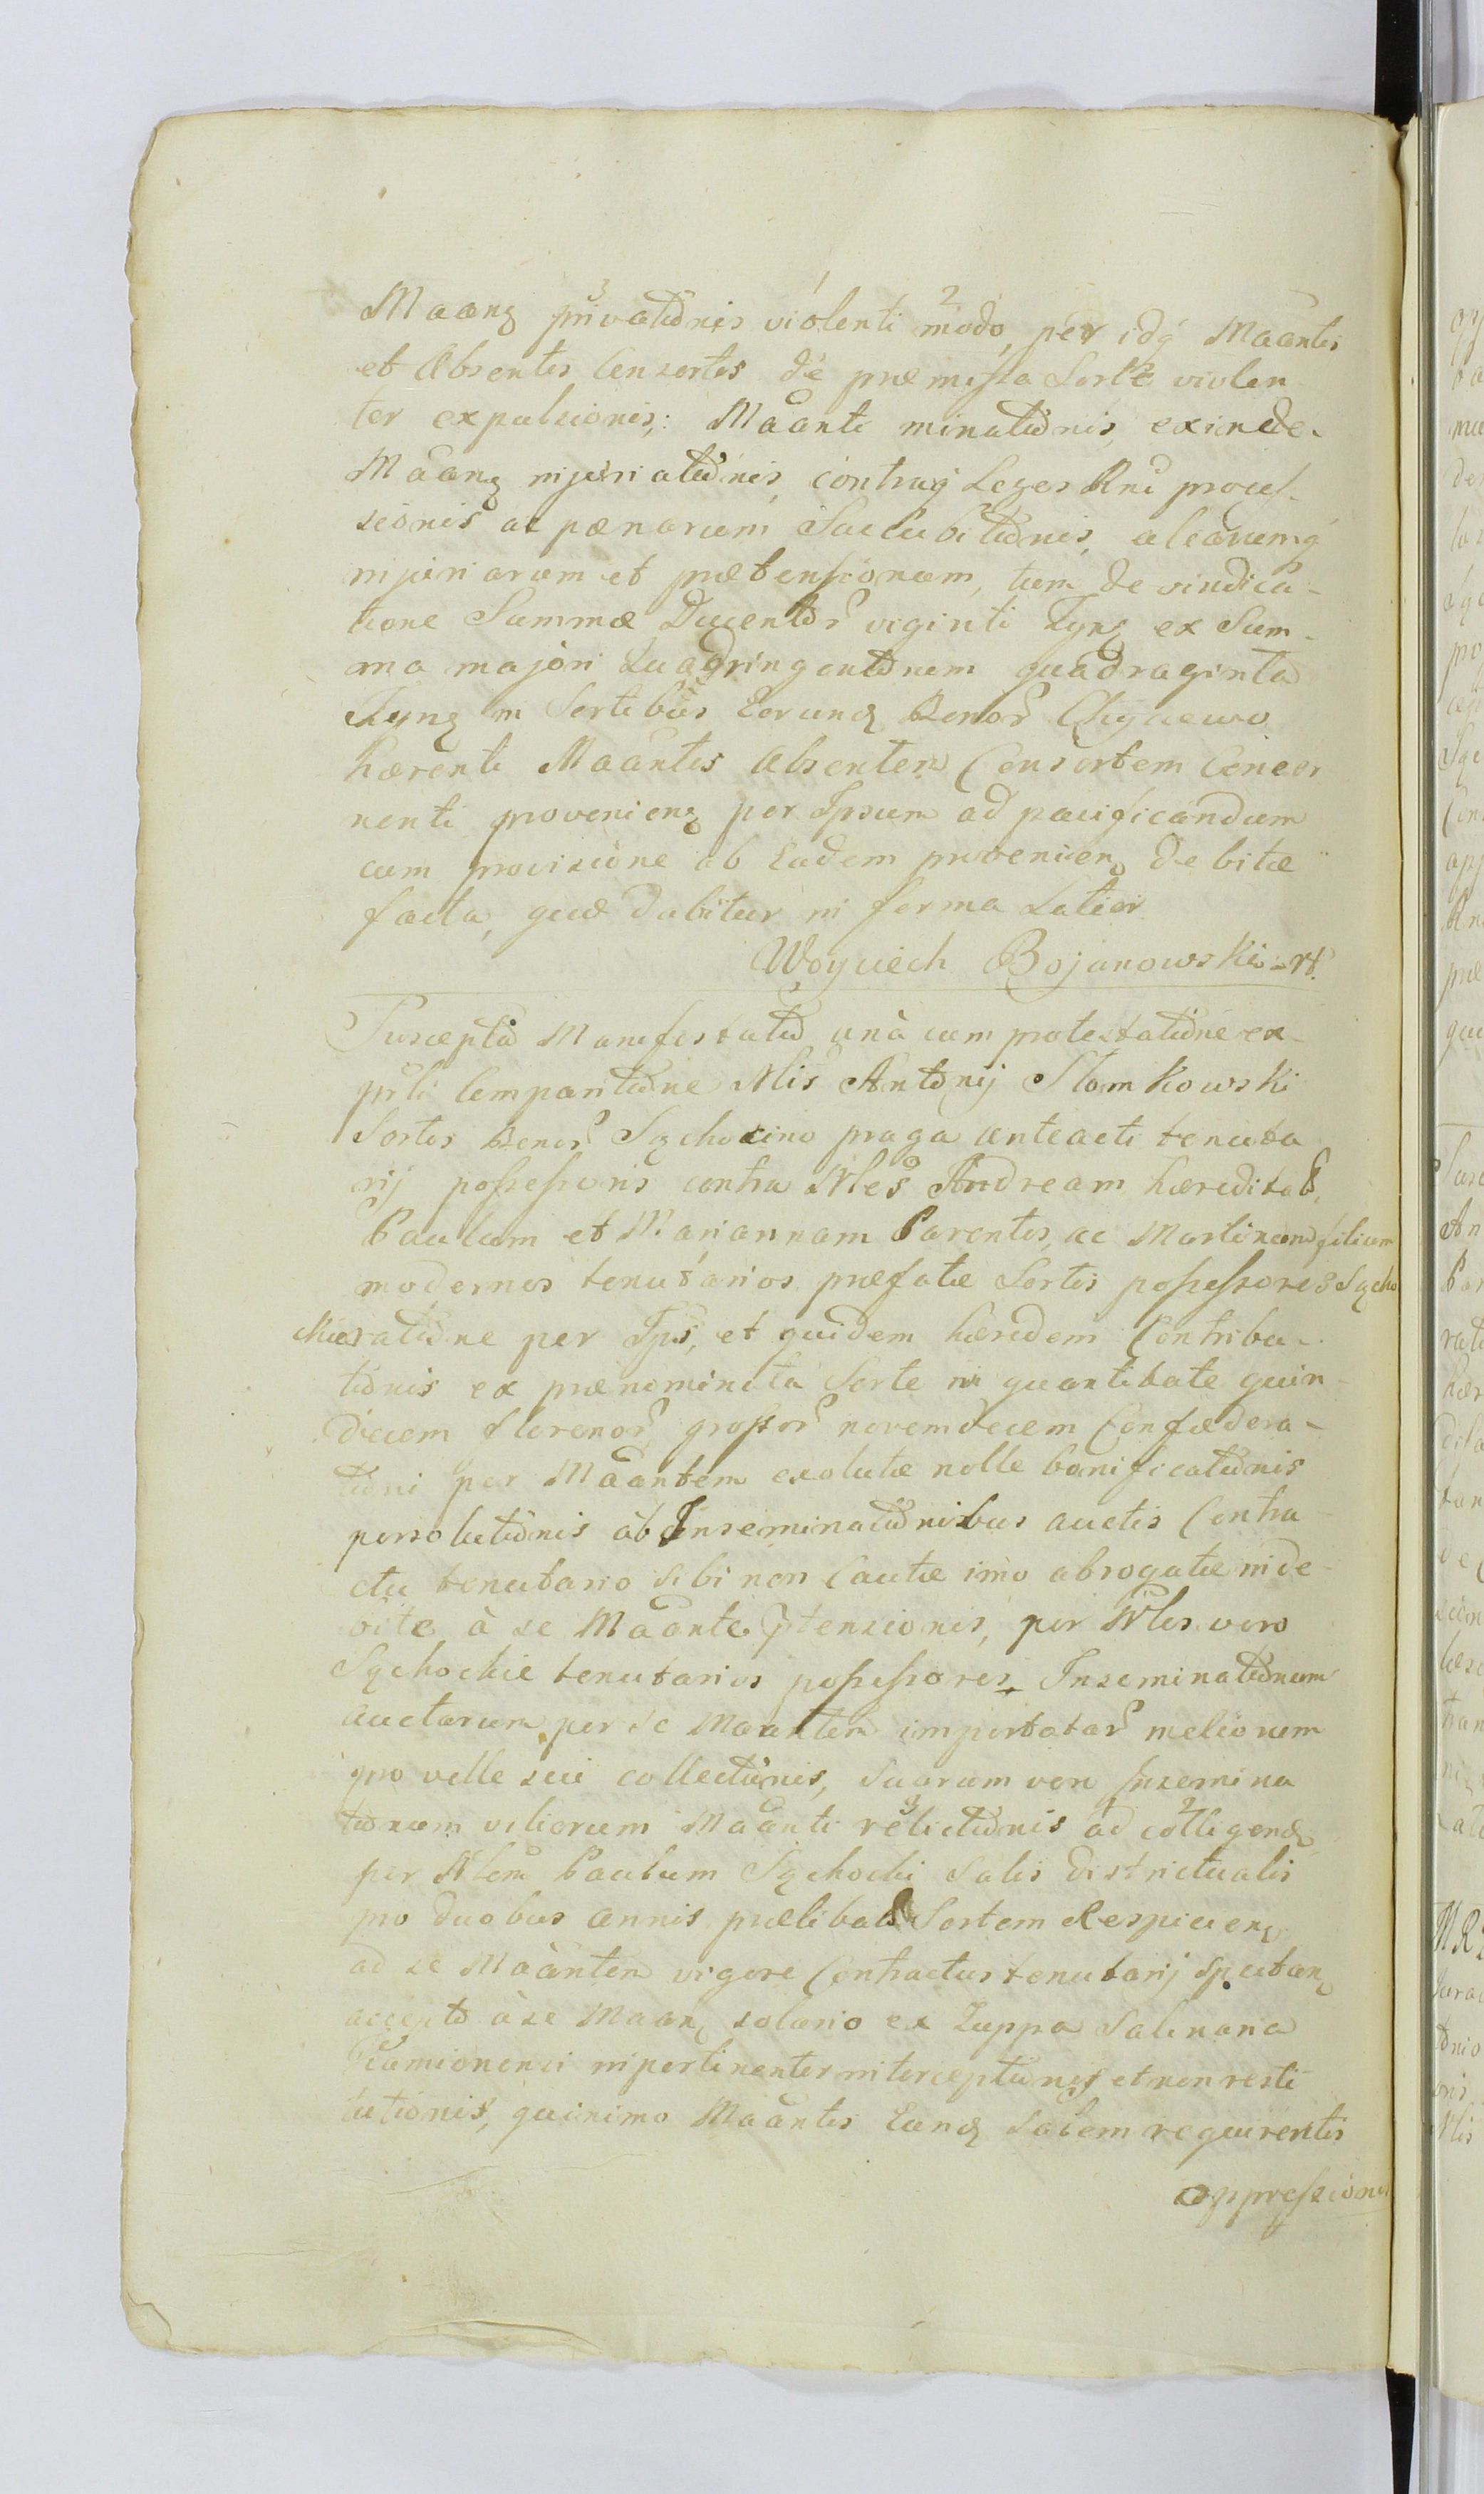 Maanꝫ privatiõnis violenti modo, per idꝗ Maantis
et Absentis Consortis de præmissa Sorte violen
ter expulsionis; Maanti minatiõnis, exinde
Maanꝫ injuriatiõnis, contraꝗ Leges Rni proces-
sionis ac pænarum Succubitiõnis, aliarumꝗ
injuriarum et prætensionum, tum de vindica-
tione Summæ Ducentor viginti Tynꝫ ex Sum-
ma majori Quadringentõnum quadraginta
Tynꝫ in Sortibus Eorundꝫ Bonor
hærenti Maantis Absentem Consortem Concer
nenti provenienꝫ per Ipsum ad pacificandum
cum provisione ab Eadem provenienꝫ debitæ
facta, quæ dabitur in forma Latiori
Woyciech Bojanowski
Susceptã Manifestatiõ unà cum protestatiõne ex
prsli Comparitiõne Nlis Antonij Słomkowski
Sortis Bonor Sychocino praga anteacti tenuta
rij possessoris contra Nles Andream hæreditaꝫ,
Paulum et Mariannam Parentes, ac Martinum filium
modernos tenutarios præfatæ Sortis possessores Sycho
ckie ratiõne per Ips, et quidem hæredem Contribu-
tiõnis ex prænominata Sorte in quantitate quin-
diecem florenor grossor novemdecem Confædera-
tiõni per Maantem exolutæ nolle bonificatiõnis
persolutiõnis ab Inseminatiõnibus auctis Contra
ctu tenutario sibi non Cautæ imo abrogatæ inde-
bite à se Maante ptensionis, per Nles vero
Sychockie tenutarios possessores Inseminatiõnum
auctarum per se Maantem importatar meliorum
pro velle sui collectiõnis, Suarum vero Insemina
tiõnum viliorum Maanti relictiõnis ad colligendꝫ
per Nlem Paulum Sychocki Salis Districtualis
pro duobus annis prælibatã Sortem Respicienꝫ
ad se Maantem vigore Contractus tenutarij Spectanꝫ
accepto à se Maanꝫ solario ex Zuppa Salinaria
impertinenter interceptiõnis et non resti
tutiõnis, quinimo Maantis Eundꝫ Salem requirentis
oppressionis